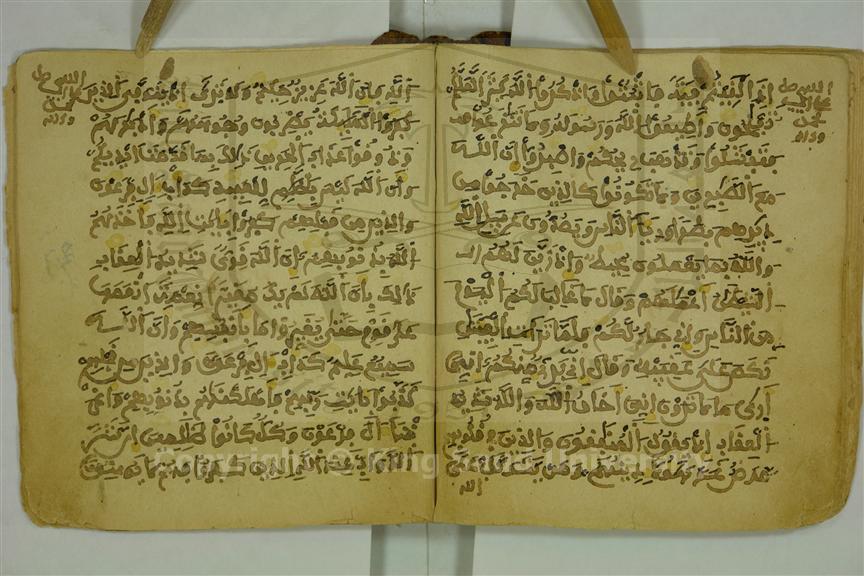 إذا لقيتم فئة فاثبتوا واذكروا الله كثيرا لعلكم
تفلحون وأطيعوا الله ورسوله ولا تنازعوا
فتفشلوا وتذهب ريحكم واصبروا إن الله
مع الصبرين ولا تكونوا كالذين خرجوا من
ديرهم بطرا ورئاء الناس ويصدون عن سبيل الله
والله بما يعملون محيط وإذ زين لهم
الشيطن أعملهم وقال لا غالب لكم اليوم
من الناس وإني جار لكم فلما تراءت الفئتن
نكص على عقبيه وقال إني بريء منكم إني
أرى ما لا ترون إني أخاف الله والله شديد
العقاب إذ يقول المنفقون والذين في قلوبهم
مرض غر هؤلاء دينهم ومن يتوكل على
الله
الله فإن الله عزيز حكيم ولو ترى إذ يتوفى الذين
كفروا الملئكة يضربون وجوههم وأدبرهم
وذوقوا عذاب الحريق ذلك بما قدمت أيديكم
وأن الله ليس بظلم للعبيد كدأب آل فرعون
والذين من قبلهم كفروا بآيت الله فأخذهم
الله بذنوبهم إن الله قوي شديد العقاب
ذلك بأن الله لم يك مغيرا نعمة أنعمها
على قوم حتى يغيروا ما بأنفسهم وأن الله
سميع عليم كدأب آل فرعون والذين من قبلهم
كذبوا بآيت ربهم فأهلكنهم بذنوبهم وأغر
قنا آل فرعون وكل كانوا ظلمين إن شر
الدواب عند الله الذين كفروا فهم لا يؤمنون
Copyright © King Saud University